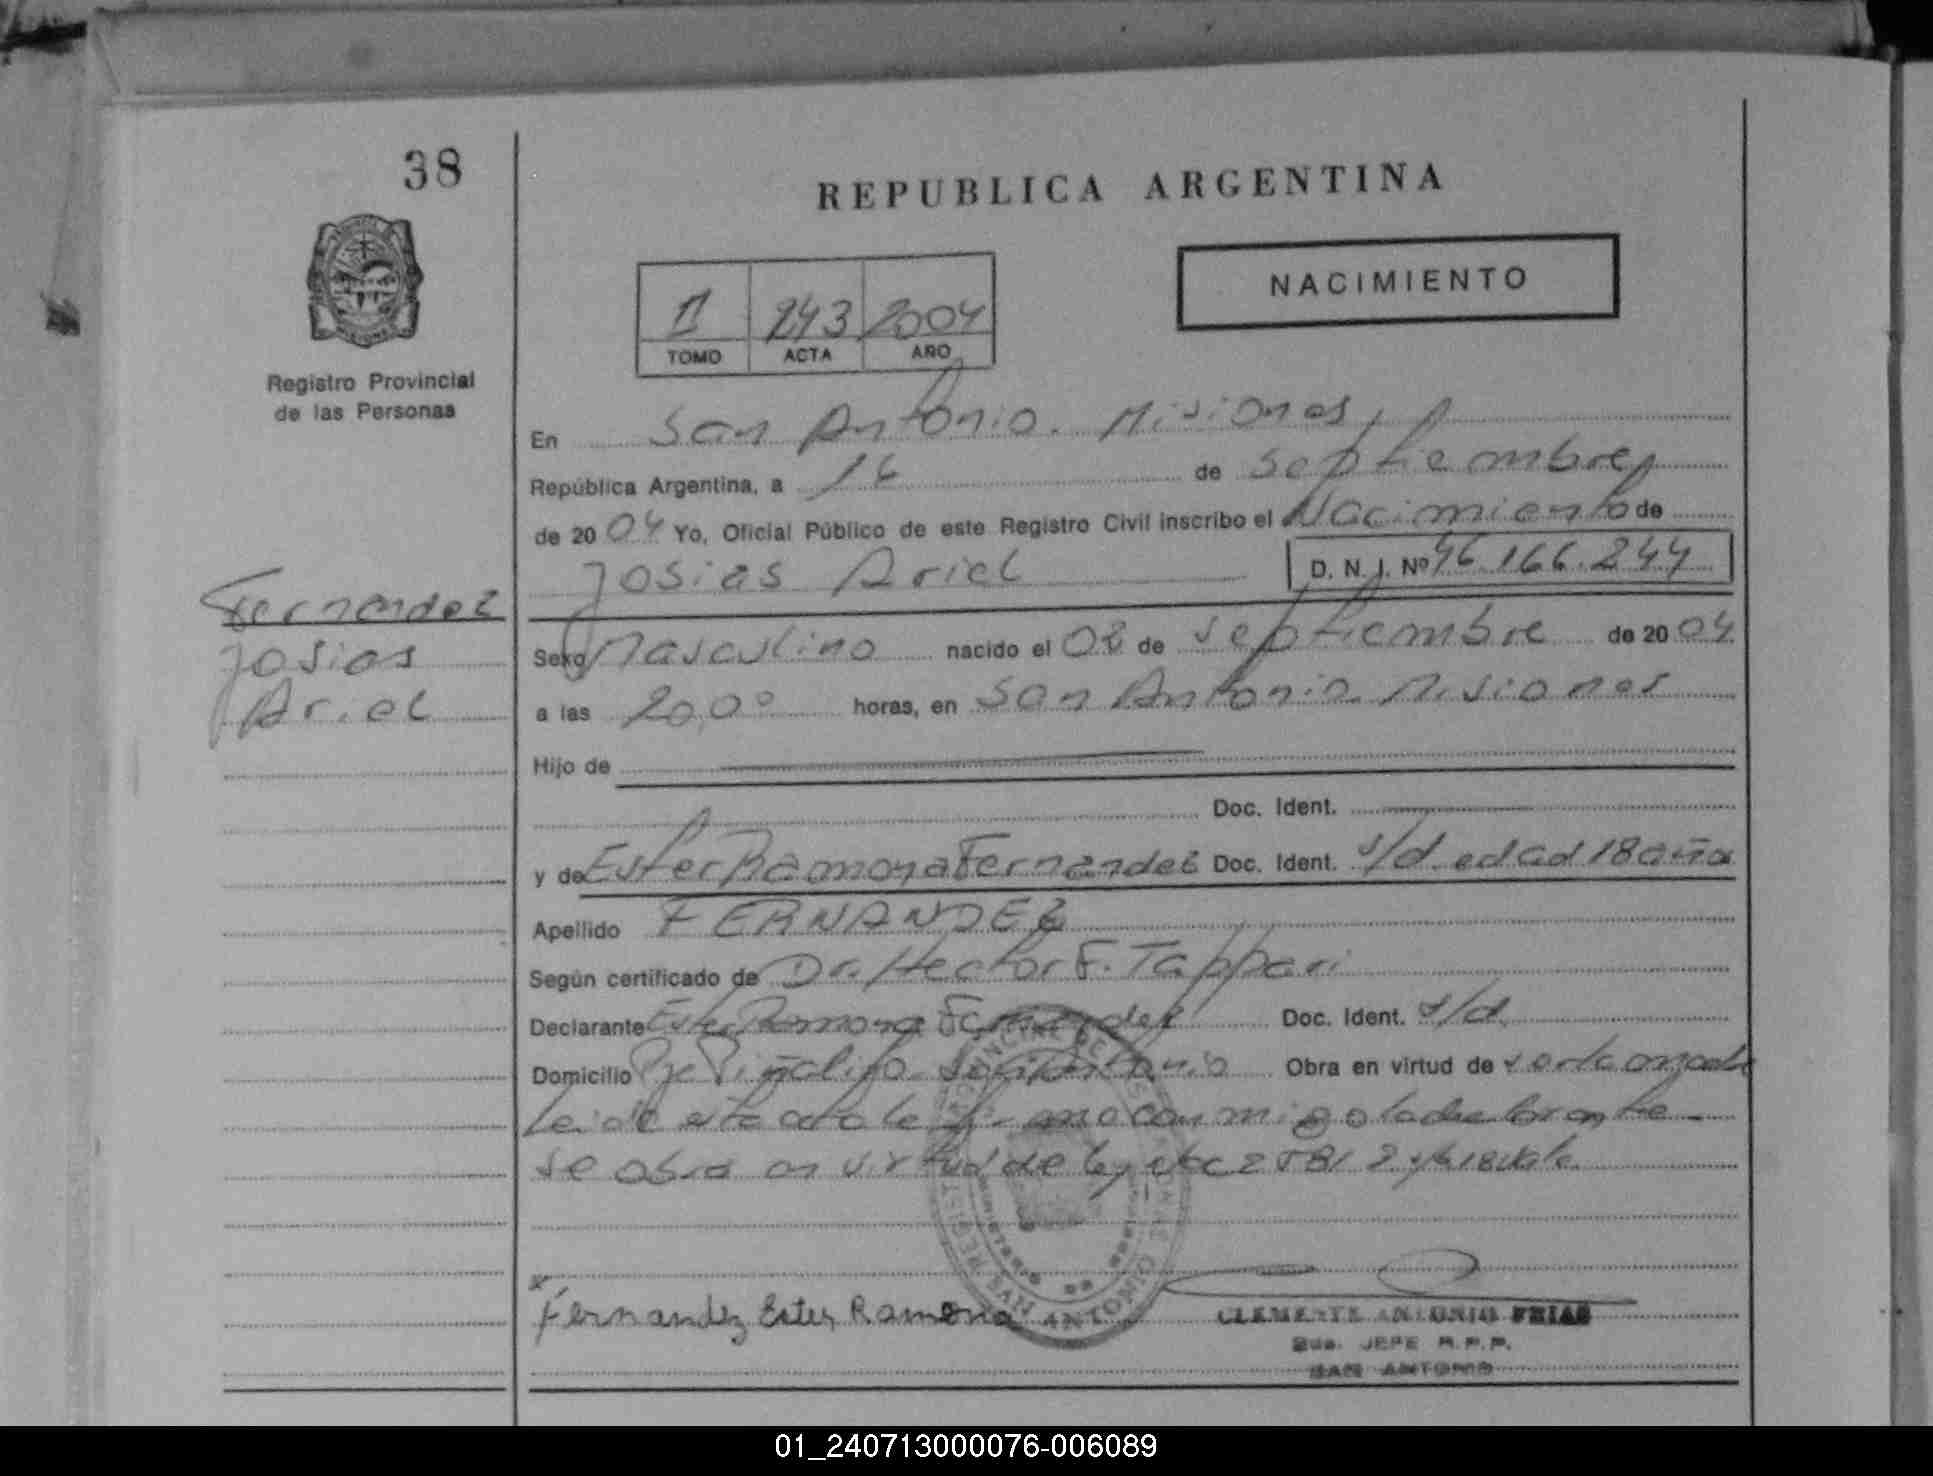 38
REPUBLICA ARGENTINA
NACIMIENTO
II 243 2004
TOMO ACTA AÑO
Registro Provincial
de las Personas
En San Antonio. Misiones,
República Argentina, a 16 de Septiembre
de 2004 Yo, Oficial Público de este Registro Civil inscribo el Nacimiento de
Josias Ariel D. N. I. Nº 46.166.244
Fernandez
Josias
Ariel
Sexo Masculino nacido el 08 de Septiembre de 2004
a las 20,00 horas, en San Antonio Misiones
Hijo de
Doc. Ident.
y de Ester Ramona Fernandez Doc. Ident. s/d. edad 18 años
Apellido FERNANDEZ
Según certificado de Dr. Hector F. Tappari
Declarante Ester Ramona Fernandez Doc. Ident. s/d.
Domicilio Pje Piñalito San Antonio Obra en virtud de
Leida esta acta la firma conmigo la declarante
se obra en virtud de ley
Fernandez Ester Ramona
SAN ANTONIO
CLEMENTE ANTONIO FRIAS
JEFE R.P.P.
SAN ANTONIO
01_240713000076-006089